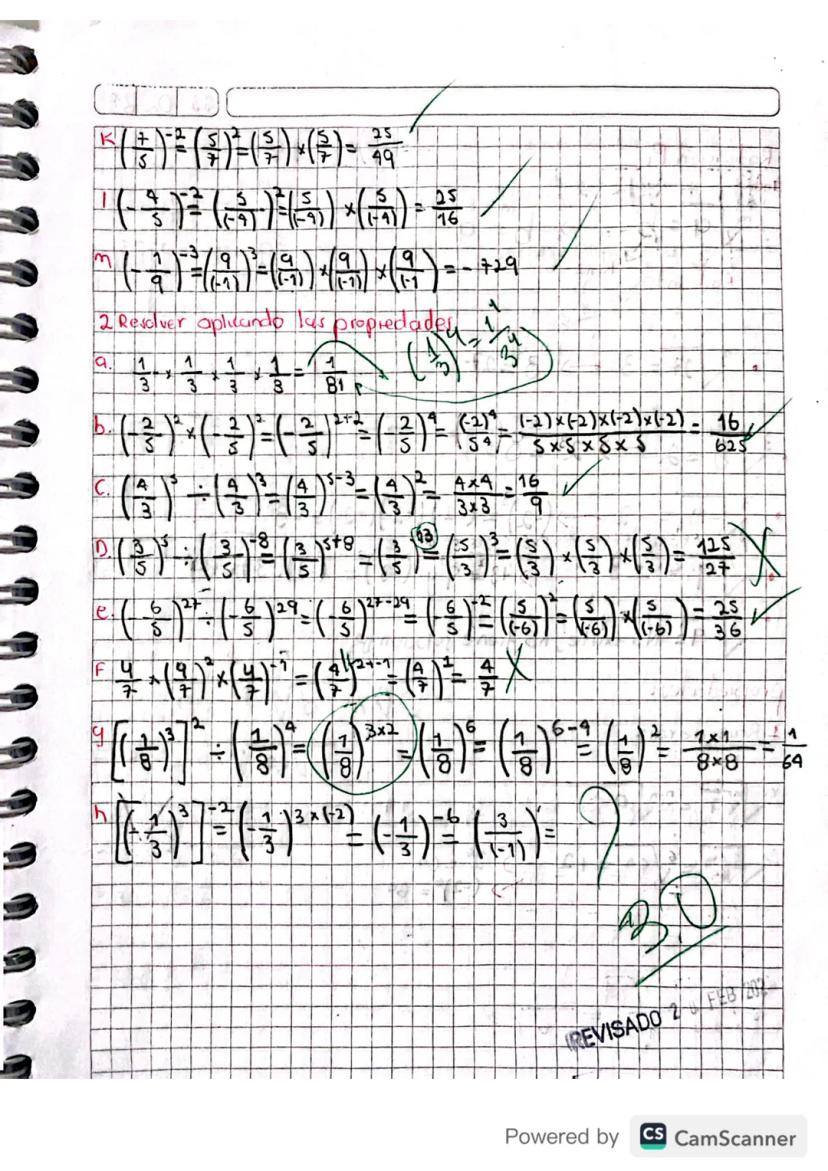 K (7/5)^-2 = (5/7)^2 = (5/7) × (5/7) = 25/49
l (-4/5)^-2 = (5/(-4))^2 = (5/(-4)) × (5/(-4)) = 25/16
m (-1/9)^-3 = (9/(-1))^3 = (9/(-1)) × (9/(-1)) × (9/(-1 ) = - 729
2 Resolver aplicando las propiedades
a. 1/3 × 1/3 × 1/3 × 1/3 = 1/81 (1/3)^4 = 1^1/3^4
b. (-2/5)^2 × (-2/5)^2 = (-2/5)^2+2 = (-2/5)^4 = (-2)^4/5^4 = (-2)×(-2)×(-2)×(-2)/5×5×5×5 = 16/625
C. (4/3)^5 ÷ (4/3)^3 = (4/3)^5-3 = (4/3)^2 = 4×4/3×3 = 16/9
D. (3/5)^5 ÷ (3/5)^-8 = (3/5)^5+8 = (3/5)^13 = (5/3)^3 = (5/3) × (5/3) × (5/3) = 125/27
e. (-6/5)^27 ÷ (-6/5)^29 = (-6/5)^27-29 = (-6/5)^-2 = (5/(-6))^2 = (5/(-6)) × (5/(-6)) = 25/36
F 4/7 × (4/7)^2 × (4/7)^-1 = (4/7)^1+2+-1 = (4/7)^1 = 4/7
g [(1/8)^3]^2 ÷ (1/8)^4 = (1/8)^3×2 = (1/8)^6 = (1/8)^6-4 = (1/8)^2 = 1×1/8×8 = 1/64
h [(-1/3)^3]^-2 = (-1/3)^3×(-2) = (-1/3)^-6 = (3/(-1)) = ?
3.0
REVISADO 2 FEB 202
Powered by CS CamScanner